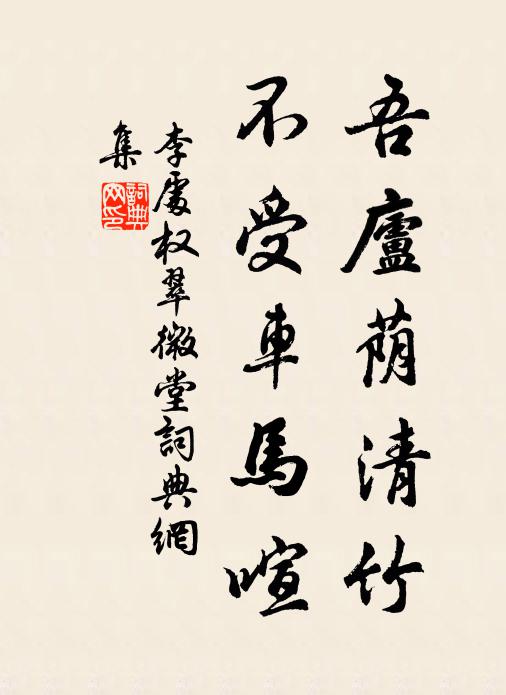 吾廬蔭清竹
不受車馬喧
李處权翠微堂詞典網
集
詞典網印